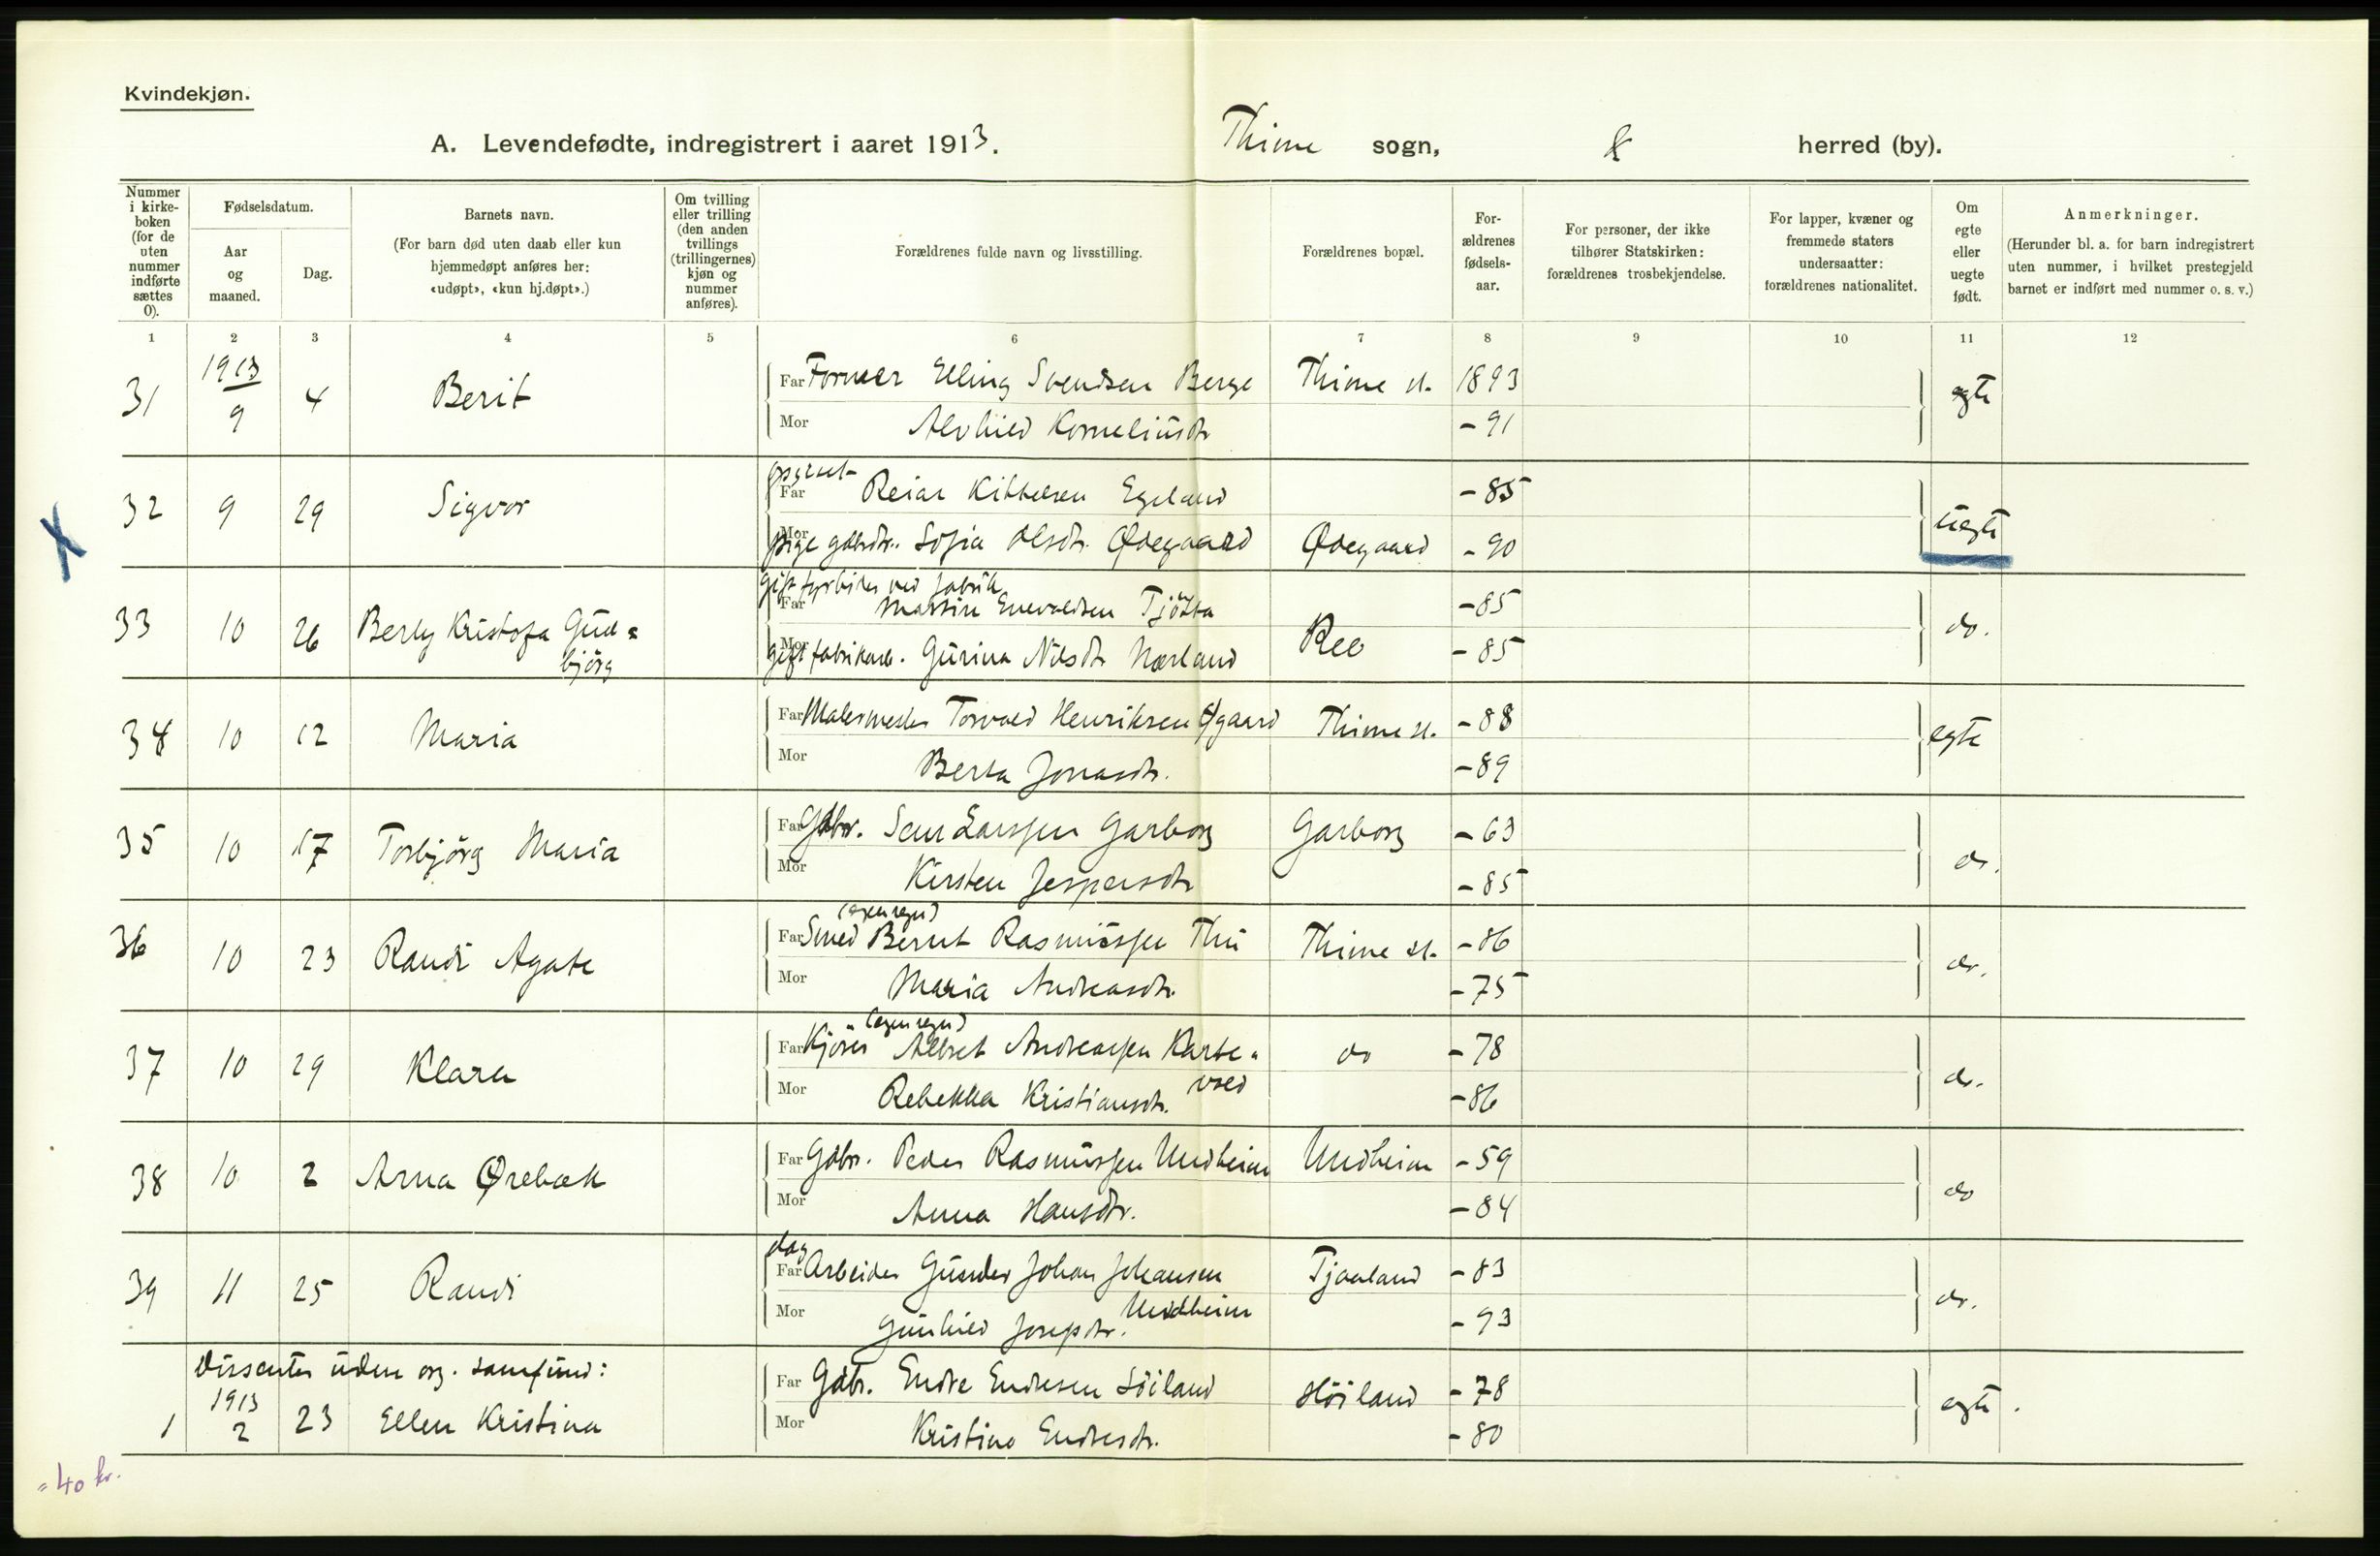 Kvindekjøn.
A. Levendefødte, indregistrert i aaret 1913. Thime sogn, herred (by).
Nummer i kirke-boken (for de uten nummer indførte sættes 0).
Fødselsdatum.
Aar og maaned.
Dag.
Barnets navn.
(For barn død uten daab eller kun hjemmedøpt anføres her: «udøpt», «kun hj.døpt».)
Om tvilling eller trilling (den anden tvillings (trillingernes) kjøn og nummer anføres).
Forældrenes fulde navn og livsstilling.
Forældrenes bopæl.
For-ældrenes fødsels-aar.
For personer, der ikke tilhører Statskirken: forældrenes trosbekjendelse.
For lapper, kvæner og fremmede staters undersaatter: forældrenes nationalitet.
Om egte eller uegte født.
Anmerkninger.
(Herunder bl. a. for barn indregistrert uten nummer, i hvilket prestegjeld barnet er indført med nummer o. s. v.)
1 2 3 4 5 6 7 8 9 10 11 12
31 1913 9 4 Berit Far Former Elling Svendsen Berge Thime st. 1893 egte
Mor Alvhild Korneliusdtr - 91
32 9 29 Sigvor Far Reiar Kittelsen Egeland - 85 uegte
Mor pige gbrdtr. Sofia Olsdtr. Ødegaard Ødegaard - 90
33 10 26 Berly Kristofa Gud=björg Far gift fyrbøter ved fabrik Martin Enevaldsen Tjötta Ree - 85 do.
Mor gift fabrikarb. Gurina Nilsdtr Nærland - 85
34 10 12 Maria Far Malermester Torvald Henriksen Thime st. - 88 egte
Mor Berta Jonasdtr. - 89
35 10 17 Torbjörg Maria Far Gdbr. Sem Larssen Garborg Garborg - 63 do.
Mor Kirsten Jespersdtr - 85
36 10 23 Randi Agate Far Smed (egen regn) Bernt Rasmussen Thu Thime st. - 86 do.
Mor Maria Andreasdtr. - 75
37 10 29 Klara Far Kjörer (egen regn) Albret Andreassen Karte=vold do - 78 do.
Mor Rebekka Kristiansdtr. - 86
38 10 2 Arna Ørebæk Far Gdbr. Peder Rasmussen Undheim Undheim - 59 do
Mor Anna Hansdtr. - 84
39 11 25 Randi Far dag Arbeider Gunder Johan Johansen Undheim Tjaaland - 83 do.
Mor Gunhild Josepdtr. - 93
Dissenter uden org. samfund:
1 1913 2 23 Ellen Kristina Far Gdbr. Endre Endresen Söiland Höiland - 78 egte.
Mor Kristine Endresdtr. - 80
= 40 kv.